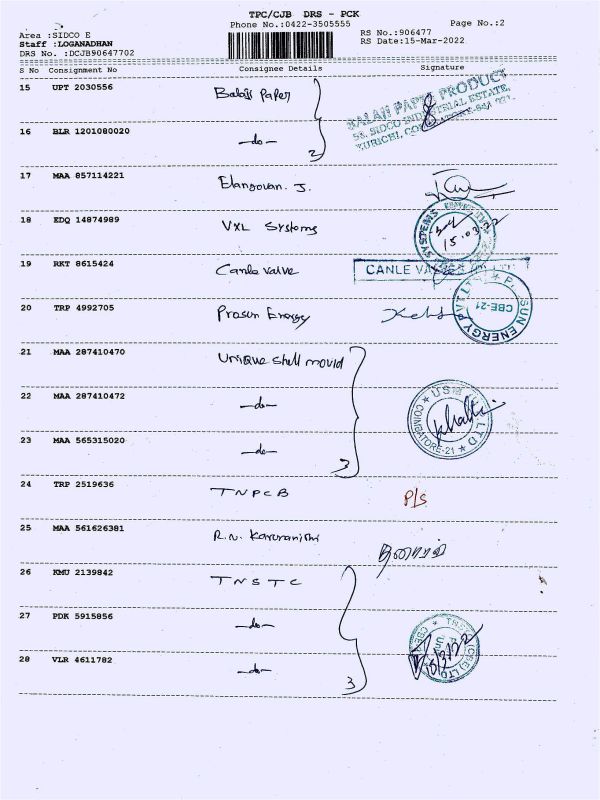 TPC/CJB DRS - PCK
Phone No.:0422-3505555 Page No.:2
Area :SIDCO E RS No.:906477
Staff :LOGANADHAN RS Date:15-Mar-2022
DRS No. :DCJB90647702
S No Consignment No Consignee Details Signature
15 UPT 2030556 Balaji Paper
BALAJI PAPER PRODUCT
58, SIDCO INDUSTRIAL ESTATE,
KURICHI,
16 BLR 1201080020 -do-
2
17 MAA 857114221 Elangovan. J.
18 EDQ 14874989 VXL Systems
SYSTEMS
15.03.22
19 RKT 8615424 Canle Valve CANLE
20 TRP 4992705 Prosun Energy
SUN ENERGY PVT LTD
CBE-21
21 MAA 287410470 Unique Shell mould
22 MAA 287410472 -do-
COIMBATORE-21
23 MAA 565315020 -do-
3
24 TRP 2519636 TNPCB P/S
25 MAA 561626381 R.N. Karuranithi
26 KMU 2139842 TNSTC
27 PDK 5915856 -do-
28 VLR 4611782 -do-
3